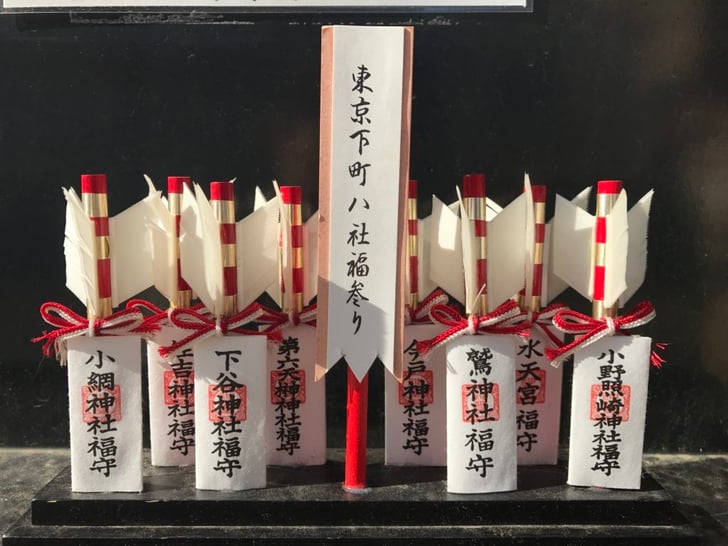 東京下町八社福参り
小網神社福守
住吉神社福守
下谷神社福守
第六天榊神社福守
今戸神社福守
鷲神社福守
水天宮福守
小野照崎神社福守